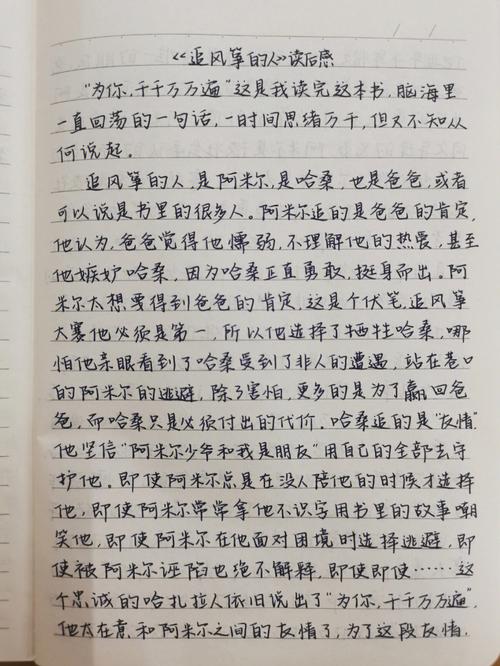 《追风筝的人》读后感
“为你,千千万万遍”这是我读完这本书,脑海里
一直回荡的一句话,一时间思绪万千,但又不知从
何说起。
追风筝的人,是阿米尔,是哈桑,也是爸爸,或者
可以说是书里的很多人。阿米尔追的是爸爸的肯定,
他认为,爸爸觉得他懦弱,不理解他的热爱,甚至
他嫉妒哈桑,因为哈桑正直勇敢,挺身而出。阿
米尔太想要得到爸爸的肯定,这是个伏笔,追风筝
大赛他必须是第一,所以他选择了牺牲哈桑,哪
怕他亲眼看到了哈桑受到了非人的遭遇,站在巷口
的阿米尔的逃避,除了害怕,更多的是为了赢回爸
爸,而哈桑只是必须付出的代价。哈桑追的是“友情”
他坚信“阿米尔少爷和我是朋友”用自己的全部去守
护他。即使阿米尔总是在没人陪他的时候才选择
他,即使阿米尔常常拿他不识字用书里的故事嘲
笑他,即使阿米尔在他面对困境时选择逃避,即
使被阿米尔诬陷也绝不解释,即使即使……这
个忠诚的哈扎拉人依旧说出了“为你,千千万万遍”,
他太在意和阿米尔之间的友情了,为了这段友情,